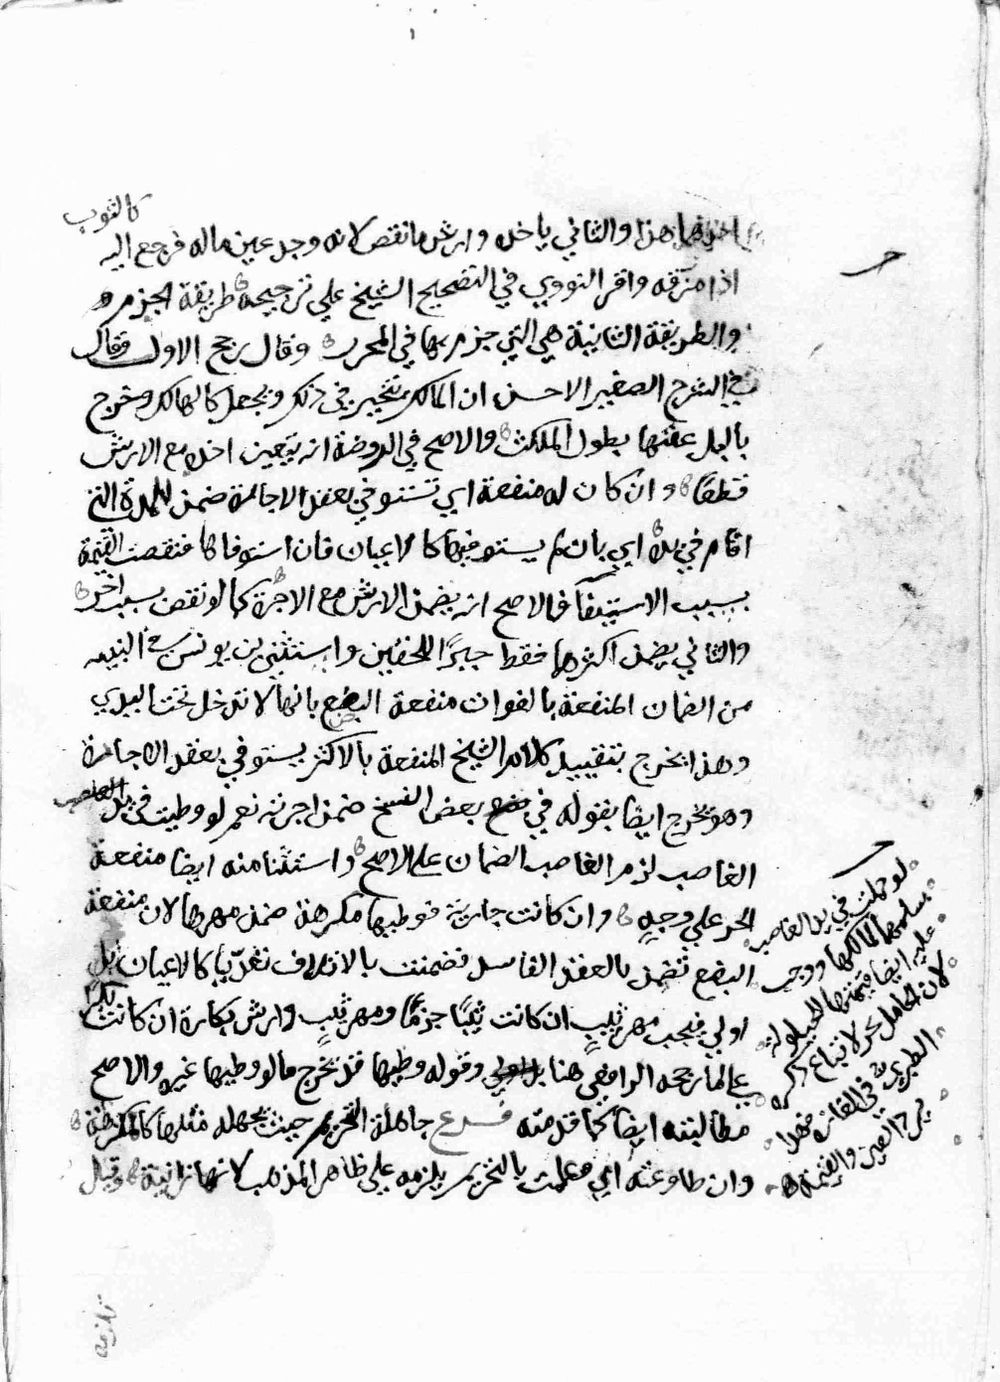 كالثوب
احدهما هذا والثاني ياخذه وارش ما نقص لانه وجد عين ماله فرجع اليه
اذا مزقه واقر النووي في التصحيح الشيخ علي ترجيحه طريقة الجزم
والطريقة الثانية هي التي جزم بها في المحرر وقال رجح الاول وقال
في الشرح الصغير الاحسن ان المالك يتخير في ذلك ويجعل كالهالك وخرج
بالبلل عفنها بطول المكث والاصح في الروضة انه يتعين اخذه مع الارش
قطعا وان كان له منفعة اي تستوفي بعقد الاجارة ضمن للمدة التي
اقام في يده اي بان لم يستوفيها كالاعيان فان استوفاها فنقصت القيمة
بسبب الاستيفآ فالاصح انه يضمن الارش مع الاجرة كما لو نقص بسبب اخر
والثاني يضمن اكثرهما فقط جبرًا للحقين واستثني بن يونس في التنبيه
من الضمان المنفعة بالفوات منفعة البضع بانها لا تدخل تحت اليد
وهذا يخرج بتقييد كلام الشيخ المنفعة بالاكثر يستوفي بعقد الاجارة
وهو يخرج ايضا بقوله في بعض النسخ ضمن اجرته نعم لو وطيت في يد الغاصب
الغاصب لزم الغاصب الضمان علي الاصح واستثنا منه ايضا منفعة
الحر علي وجهٍ وان كانت جارية فوطيها مكرهة ضمن مهرها لان منفعة
البضع تضمن بالعقد الفاسد فضمنت بالاتلاف تعديا كالاعيان بل
اولي فيجب مهر ثيب ان كانت ثيبًا جزمًا ومهر ثيبٍ وارش بكارة ان كانت بكرًا
علي ما رجحه الرافعي هنا وقوله وطيها قد يخرج ما لو وطيها غيره والاصح
مطالبته ايضا كما قدمته فرع جاهلة التحريم حيث يجهله مثلها كالمكرهة
وان طاوعته اي وعلمت بالتحريم لم يلزمه علي ظاهر المذهب لانها زانية وقيل
لو حملت في يد الغاصب
سلمها لمالكها ووجب
عليه ايضا قيمتها للحيلولة
لان الحامل بحر لا تباع ذكره
الطبري
يرد العين والقيمة
تلزمه